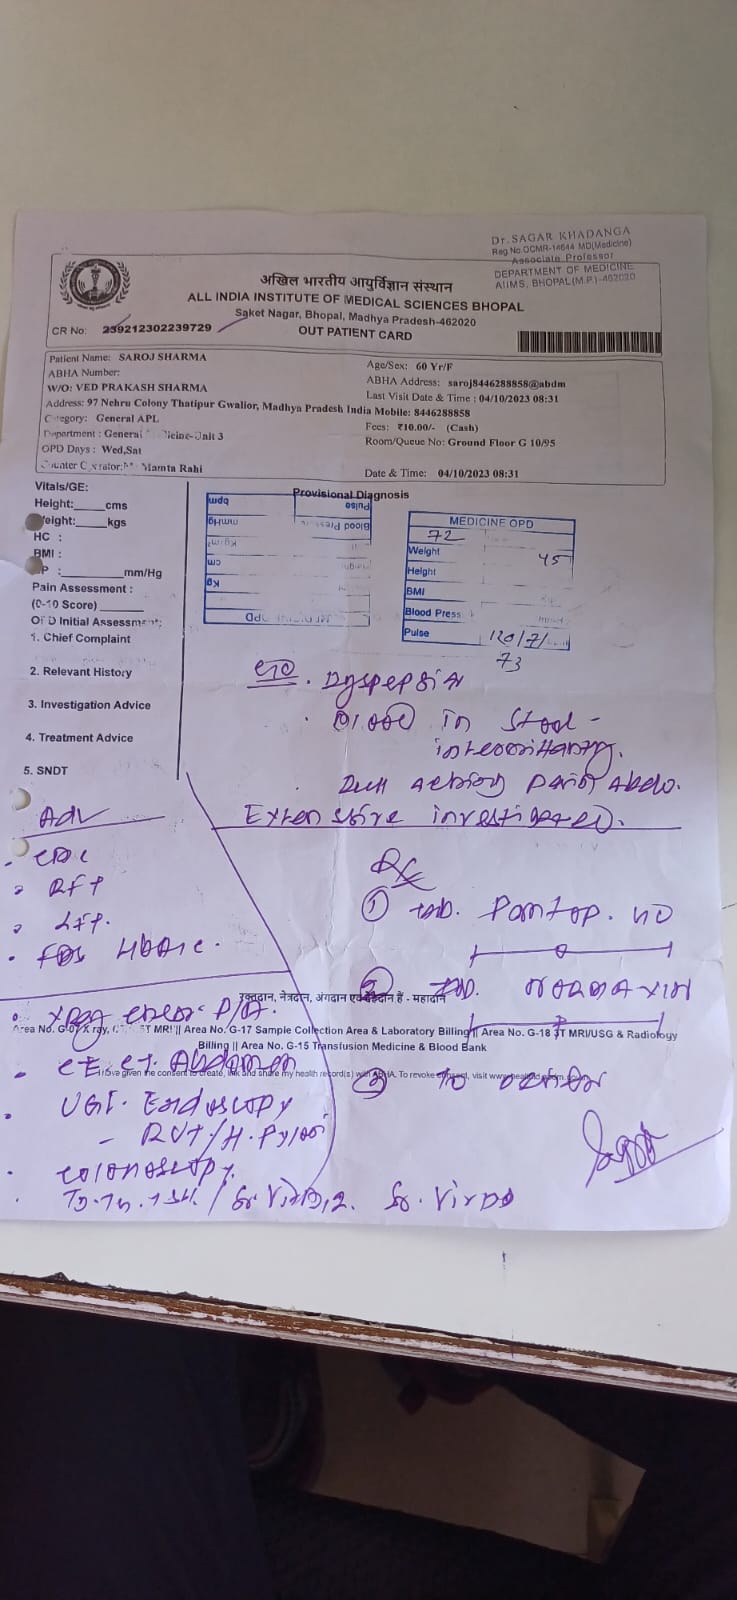 Dr. SAGAR KHADANGA
Reg No.OCMR-14644 MD(Medicine)
Associate Professor
DEPARTMENT OF MEDICINE
AIIMS, BHOPAL(M.P)-462020
अखिल भारतीय आयुर्विज्ञान संस्थान
ALL INDIA INSTITUTE OF MEDICAL SCIENCES BHOPAL
Saket Nagar, Bhopal, Madhya Pradesh-462020
CR No: 239212302239729
OUT PATIENT CARD
Patient Name: SAROJ SHARMA
Age/Sex: 60 Yr/F
ABHA Number:
ABHA Address: saroj8446288858@abdm
W/O: VED PRAKASH SHARMA
Last Visit Date & Time : 04/10/2023 08:31
Address: 97 Nehru Colony Thatipur Gwalior, Madhya Pradesh India Mobile: 8446288858
Category: General APL
Fees: ₹10.00/- (Cash)
Department : General Medicine-Unit 3
Room/Queue No: Ground Floor G 10/95
OPD Days : Wed,Sat
Mamta Rahi
Date & Time: 04/10/2023 08:31
Vitals/GE:
Provisional Diagnosis
Height: cms
Weight: kgs
HC :
BMI :
BP : mm/Hg
Pain Assessment :
(0-10 Score)
OPD Initial Assessment:
1. Chief Complaint
2. Relevant History
3. Investigation Advice
4. Treatment Advice
5. SNDT
bpm
Pulse
mmHg
Blood Press
Kg/m²
cm
Kg
MEDICINE OPD
MEDICINE OPD
72
Weight 45
Height
BMI
Blood Press
Pulse 120/7
73
c/o. Dyspepsia
Blood in Stool -
intermittently.
Dull aching pain Abdo.
Extensive investigated.
Adv
CBC
RFT
LFT.
FBS HbA1c.
Xray chest P/A.
CECT Abdomen
UGI. Endoscopy
- RUT/H. Pylori
Colonoscopy.
T3.T4.TSH. / Sr. Vit B12. Sr. Vit D
Rx
① Tab. Pantop. 40
② Tab. NORMAXIN
③ To
रक्तदान, नेत्रदान, अंगदान एवं देहदान हैं - महादान
MRI || Area No. G-17 Sample Collection Area & Laboratory Billing || Area No. G-18 CT MRI/USG & Radiology
Billing || Area No. G-15 Transfusion Medicine & Blood Bank
I have given the consent to create, link and share my health record(s) with ABHA. To revoke consent, visit